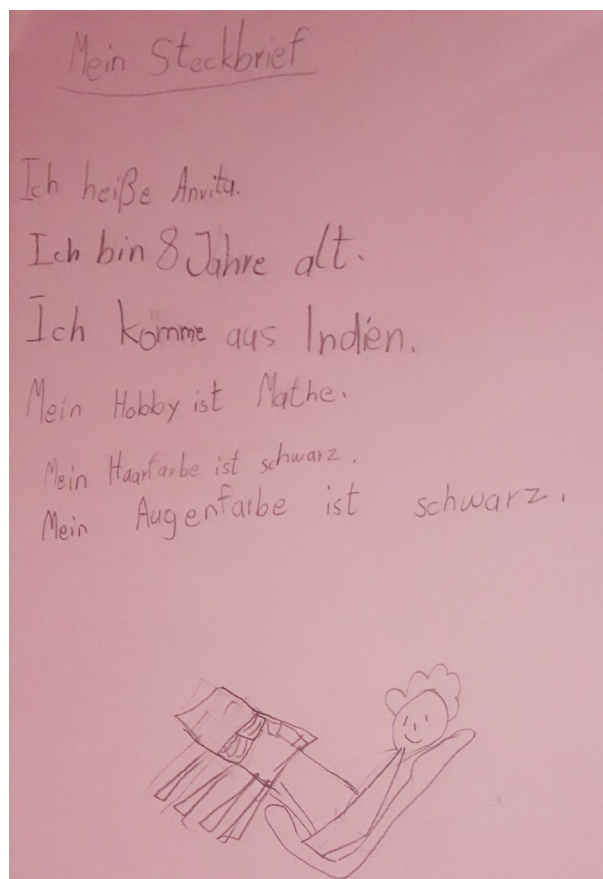 Mein Steckbrief
Ich heiße Anvita.
Ich bin 8 Jahre alt.
Ich komme aus Indien.
Mein Hobby ist Mathe.
Mein Haarfarbe ist schwarz.
Mein Augenfarbe ist schwarz.